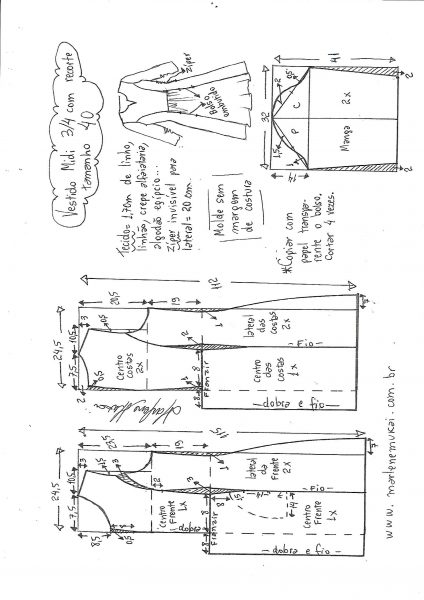 Vestido Midi 3/4 com recorte
tamanho 40
Zíper
Bolso
embutido
Tecido= 1,70m de linho,
linhão, crepe alfaiataria,
algodão egípcio...
Zíper invisível para
lateral = 20 cm
Molde sem
margem
de costura
*Copiar com
papel transpa-
rente o bolso.
Cortar 4 vezes.
41
32
14
1,5
1
2
0,5
P
C
Manga
2x
2
2
112
24,5
20,5
19
10,5
7,5
3
0,5
2
0,5
1
2
8
8
Centro
costas
2x
lateral
das
costas
2x
Fio
Centro
das
costas
1x
Franzir
dobra e fio
115
24,5
23,5
19
10,5
7,5
8,5
3
0,5
3
2
0,5
1
8
8
8
15
14
Centro
Frente
1x
dobra
lateral
da
Frente
2x
Fio
Centro
Frente
1x
Franzir
dobra e fio
www.marlenemukai.com.br